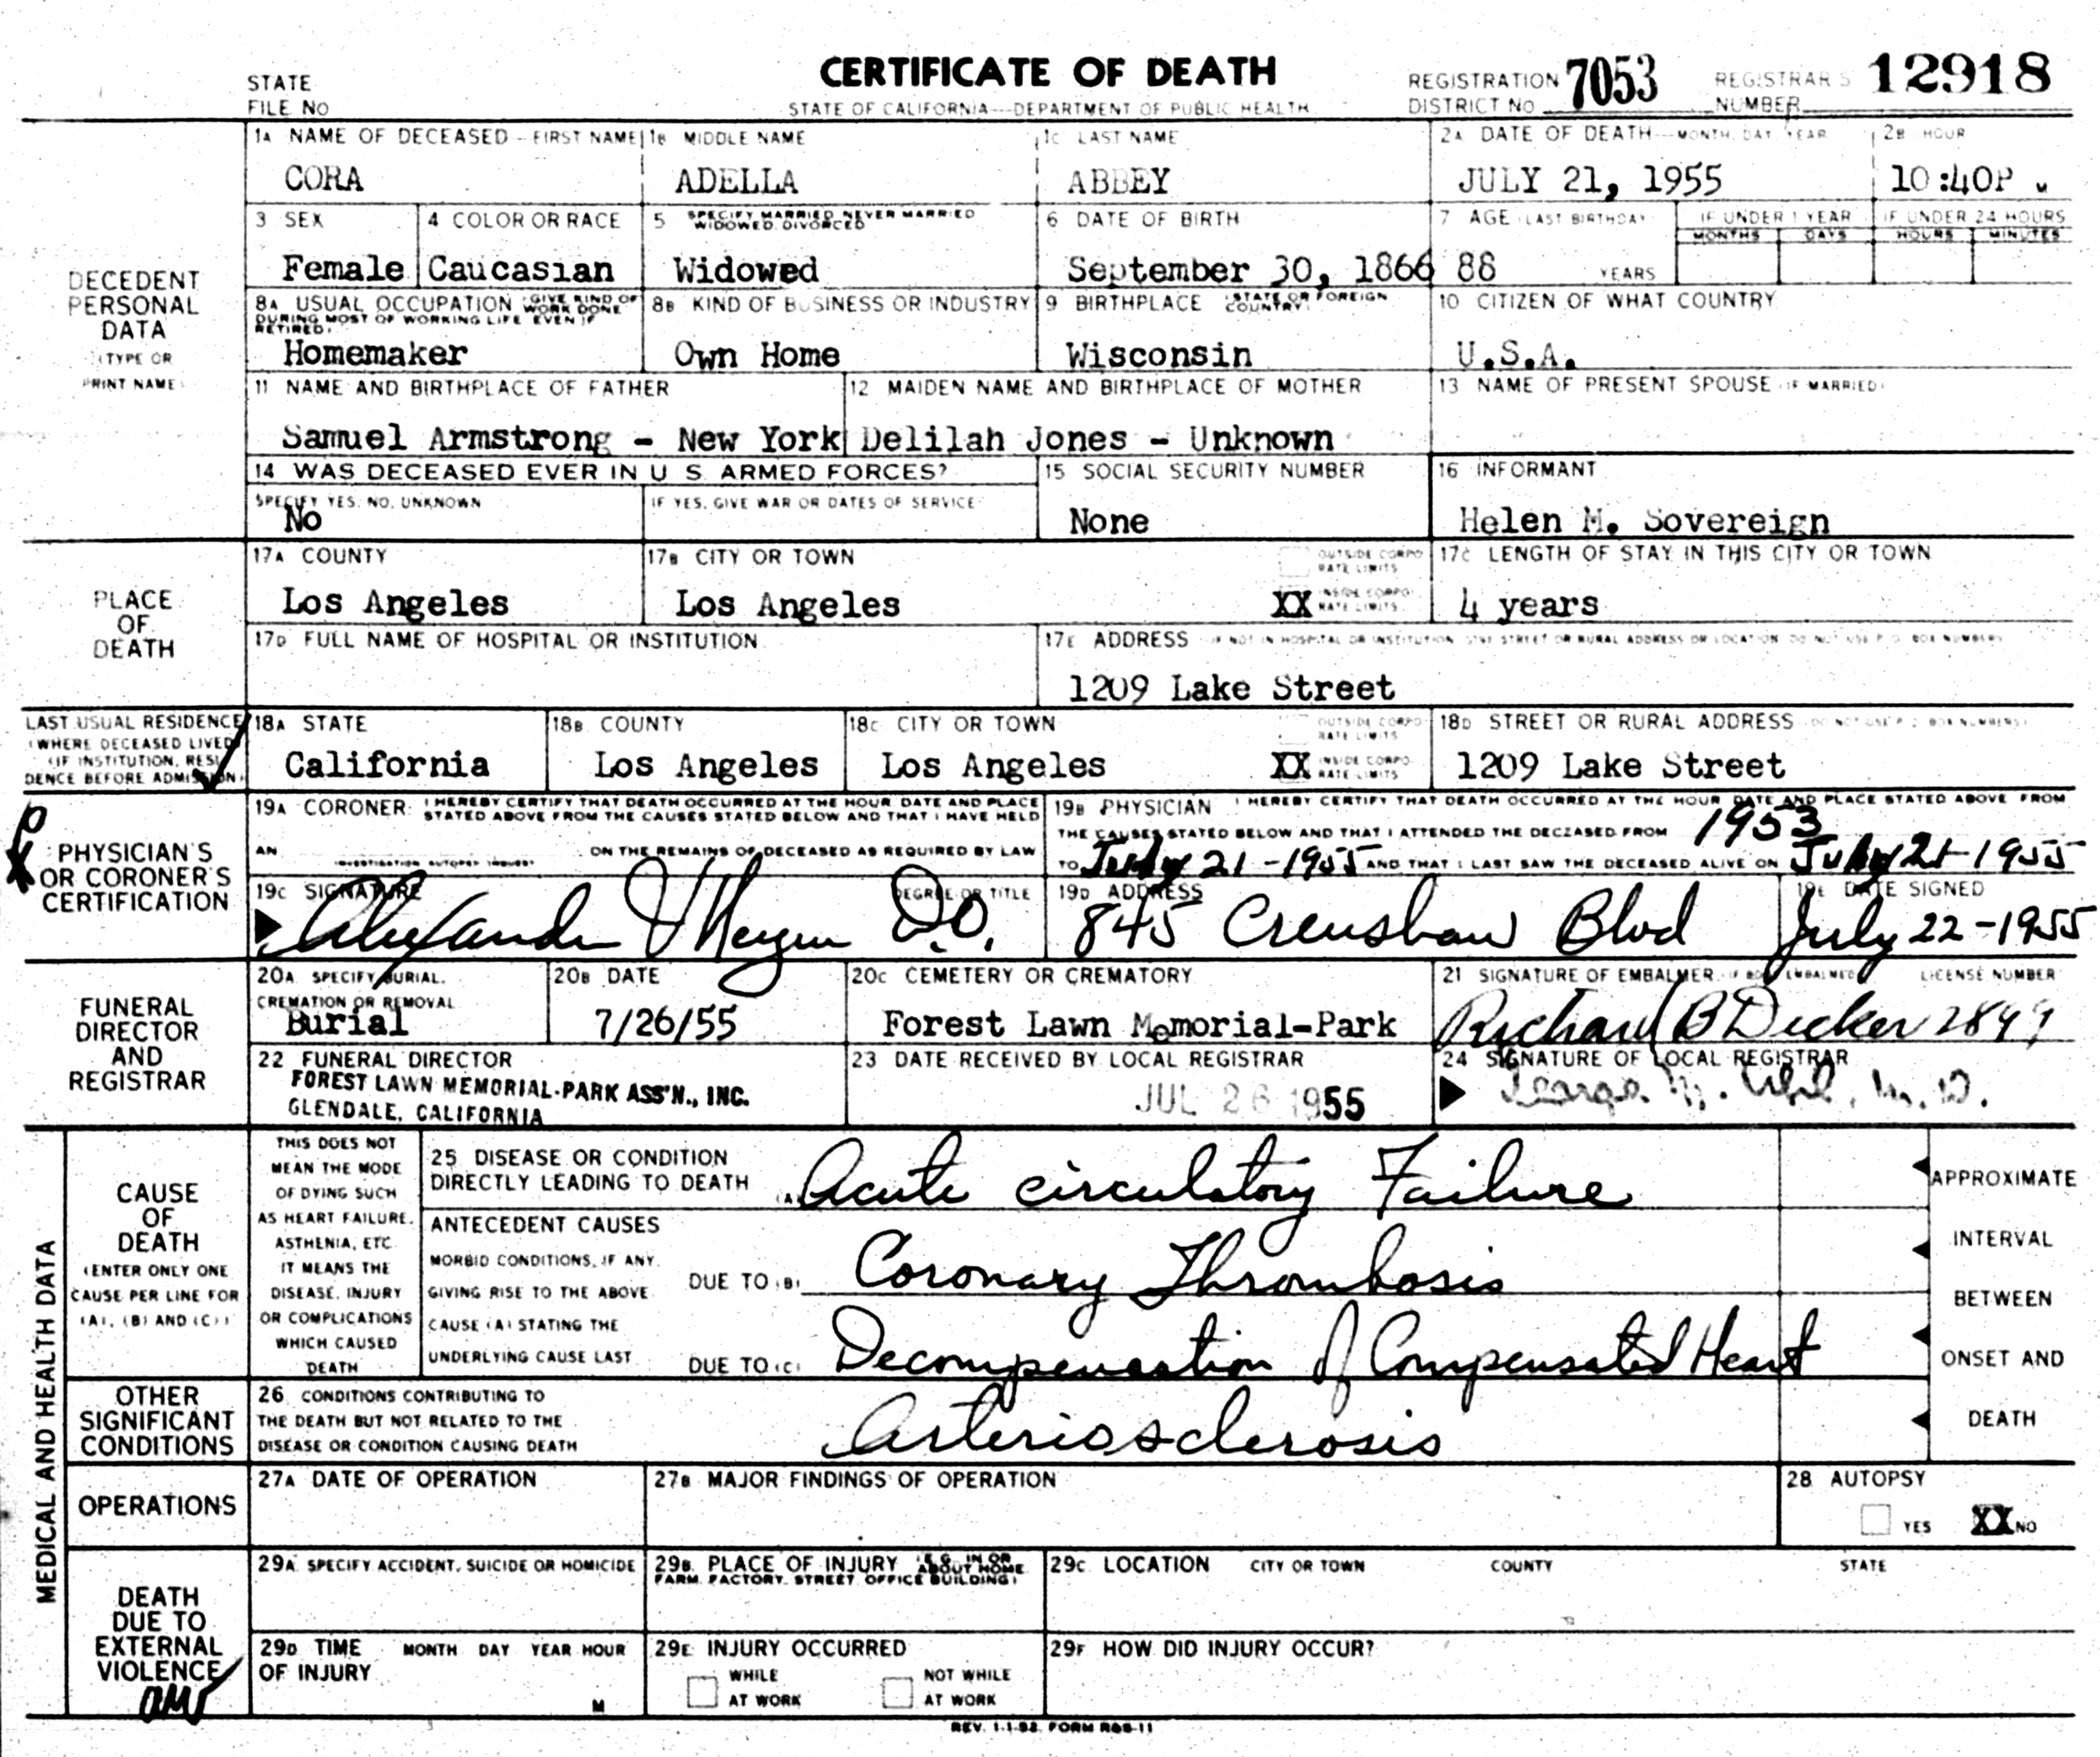 CERTIFICATE OF DEATH
STATE
FILE No
STATE OF CALIFORNIA—DEPARTMENT OF PUBLIC HEALTH
REGISTRATION DISTRICT No 7053
REGISTRAR'S NUMBER 12918
DECEDENT PERSONAL DATA
(TYPE OR PRINT NAME)
1A NAME OF DECEASED—FIRST NAME
CORA
1B MIDDLE NAME
ADELLA
1C LAST NAME
ABBEY
2A DATE OF DEATH—MONTH, DAY, YEAR
JULY 21, 1955
2B HOUR
10:40P M
3 SEX
Female
4 COLOR OR RACE
Caucasian
5 SPECIFY MARRIED, NEVER MARRIED WIDOWED, DIVORCED
Widowed
6 DATE OF BIRTH
September 30, 1866
7 AGE (LAST BIRTHDAY)
88 YEARS
IF UNDER 1 YEAR
MONTHS DAYS
IF UNDER 24 HOURS
HOURS MINUTES
8A USUAL OCCUPATION (GIVE KIND OF WORK DONE DURING MOST OF WORKING LIFE EVEN IF RETIRED)
Homemaker
8B KIND OF BUSINESS OR INDUSTRY
Own Home
9 BIRTHPLACE (STATE OR FOREIGN COUNTRY)
Wisconsin
10 CITIZEN OF WHAT COUNTRY
U.S.A.
11 NAME AND BIRTHPLACE OF FATHER
Samuel Armstrong - New York
12 MAIDEN NAME AND BIRTHPLACE OF MOTHER
Delilah Jones - Unknown
13 NAME OF PRESENT SPOUSE (IF MARRIED)
14 WAS DECEASED EVER IN U S ARMED FORCES?
SPECIFY YES, NO, UNKNOWN
No
IF YES, GIVE WAR OR DATES OF SERVICE
15 SOCIAL SECURITY NUMBER
None
16 INFORMANT
Helen M. Sovereign
PLACE OF DEATH
17A COUNTY
Los Angeles
17B CITY OR TOWN
Los Angeles
OUTSIDE CORPORATE LIMITS
XX INSIDE CORPORATE LIMITS
17C LENGTH OF STAY IN THIS CITY OR TOWN
4 years
17D FULL NAME OF HOSPITAL OR INSTITUTION
17E ADDRESS (IF NOT IN HOSPITAL OR INSTITUTION GIVE STREET OR RURAL ADDRESS OR LOCATION DO NOT USE P.O. BOX NUMBERS)
1209 Lake Street
LAST USUAL RESIDENCE
(WHERE DECEASED LIVED)
(IF INSTITUTION, RESIDENCE BEFORE ADMISSION)
18A STATE
California
18B COUNTY
Los Angeles
18C CITY OR TOWN
Los Angeles
OUTSIDE CORPORATE LIMITS
XX INSIDE CORPORATE LIMITS
18D STREET OR RURAL ADDRESS (DO NOT USE P.O. BOX NUMBERS)
1209 Lake Street
PHYSICIAN'S OR CORONER'S CERTIFICATION
19A CORONER: I HEREBY CERTIFY THAT DEATH OCCURRED AT THE HOUR DATE AND PLACE STATED ABOVE FROM THE CAUSES STATED BELOW AND THAT I HAVE HELD
AN INVESTIGATION AUTOPSY INQUEST ON THE REMAINS OF DECEASED AS REQUIRED BY LAW
19B PHYSICIAN I HEREBY CERTIFY THAT DEATH OCCURRED AT THE HOUR DATE AND PLACE STATED ABOVE FROM
THE CAUSES STATED BELOW AND THAT I ATTENDED THE DECEASED FROM 1953
TO July 21-1955 AND THAT I LAST SAW THE DECEASED ALIVE ON July 21-1955
19C SIGNATURE DEGREE OR TITLE
Alexander D.O.
19D ADDRESS
845 Crenshaw Blvd
19E DATE SIGNED
July 22-1955
FUNERAL DIRECTOR AND REGISTRAR
20A SPECIFY BURIAL, CREMATION OR REMOVAL
Burial
20B DATE
7/26/55
20C CEMETERY OR CREMATORY
Forest Lawn Memorial-Park
21 SIGNATURE OF EMBALMER (IF BODY EMBALMED) LICENSE NUMBER
Richard B Decker 2849
22 FUNERAL DIRECTOR
FOREST LAWN MEMORIAL-PARK ASS'N., INC.
GLENDALE, CALIFORNIA
23 DATE RECEIVED BY LOCAL REGISTRAR
JUL 26 1955
24 SIGNATURE OF LOCAL REGISTRAR
George M. Uhl, M.D.
MEDICAL AND HEALTH DATA
CAUSE OF DEATH
(ENTER ONLY ONE CAUSE PER LINE FOR (A), (B) AND (C))
THIS DOES NOT MEAN THE MODE OF DYING SUCH AS HEART FAILURE, ASTHENIA, ETC. IT MEANS THE DISEASE, INJURY OR COMPLICATIONS WHICH CAUSED DEATH
25 DISEASE OR CONDITION DIRECTLY LEADING TO DEATH (A) Acute circulatory Failure
ANTECEDENT CAUSES
MORBID CONDITIONS, IF ANY, GIVING RISE TO THE ABOVE CAUSE (A) STATING THE UNDERLYING CAUSE LAST
DUE TO (B) Coronary Thrombosis
DUE TO (C) Decompensation of Compensated Heart
APPROXIMATE INTERVAL BETWEEN ONSET AND DEATH
OTHER SIGNIFICANT CONDITIONS
26 CONDITIONS CONTRIBUTING TO THE DEATH BUT NOT RELATED TO THE DISEASE OR CONDITION CAUSING DEATH
Arteriosclerosis
OPERATIONS
27A DATE OF OPERATION
27B MAJOR FINDINGS OF OPERATION
28 AUTOPSY
YES XX NO
DEATH DUE TO EXTERNAL VIOLENCE
29A SPECIFY ACCIDENT, SUICIDE OR HOMICIDE
29B. PLACE OF INJURY (E.G. IN OR ABOUT HOME FARM, FACTORY, STREET OFFICE BUILDING)
29C LOCATION CITY OR TOWN COUNTY STATE
29D TIME OF INJURY MONTH DAY YEAR HOUR
M
29E INJURY OCCURRED
WHILE AT WORK
NOT WHILE AT WORK
29F HOW DID INJURY OCCUR?
REV. 1-1-52. FORM R&S-11